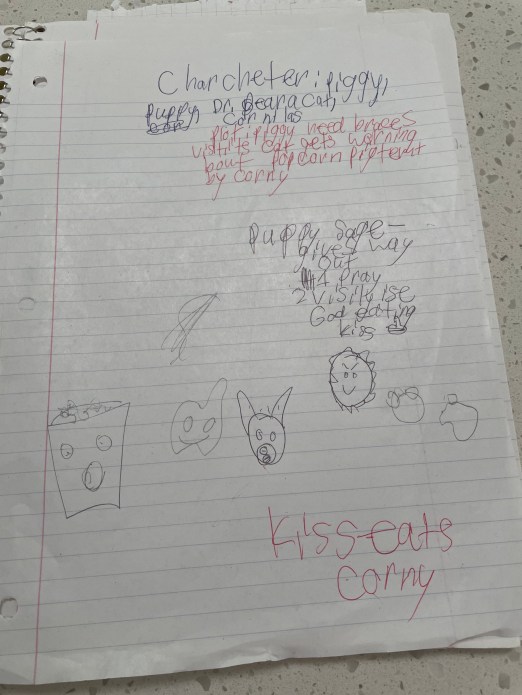 Charcheter: piggy,
puppy Dr. Bearacat,
corn
plot: piggy need braces
cat gets warning
bout popcorn
by corny
puppy sage-
gives way
out
pray
2
God eating
kiss
kiss eats
corny